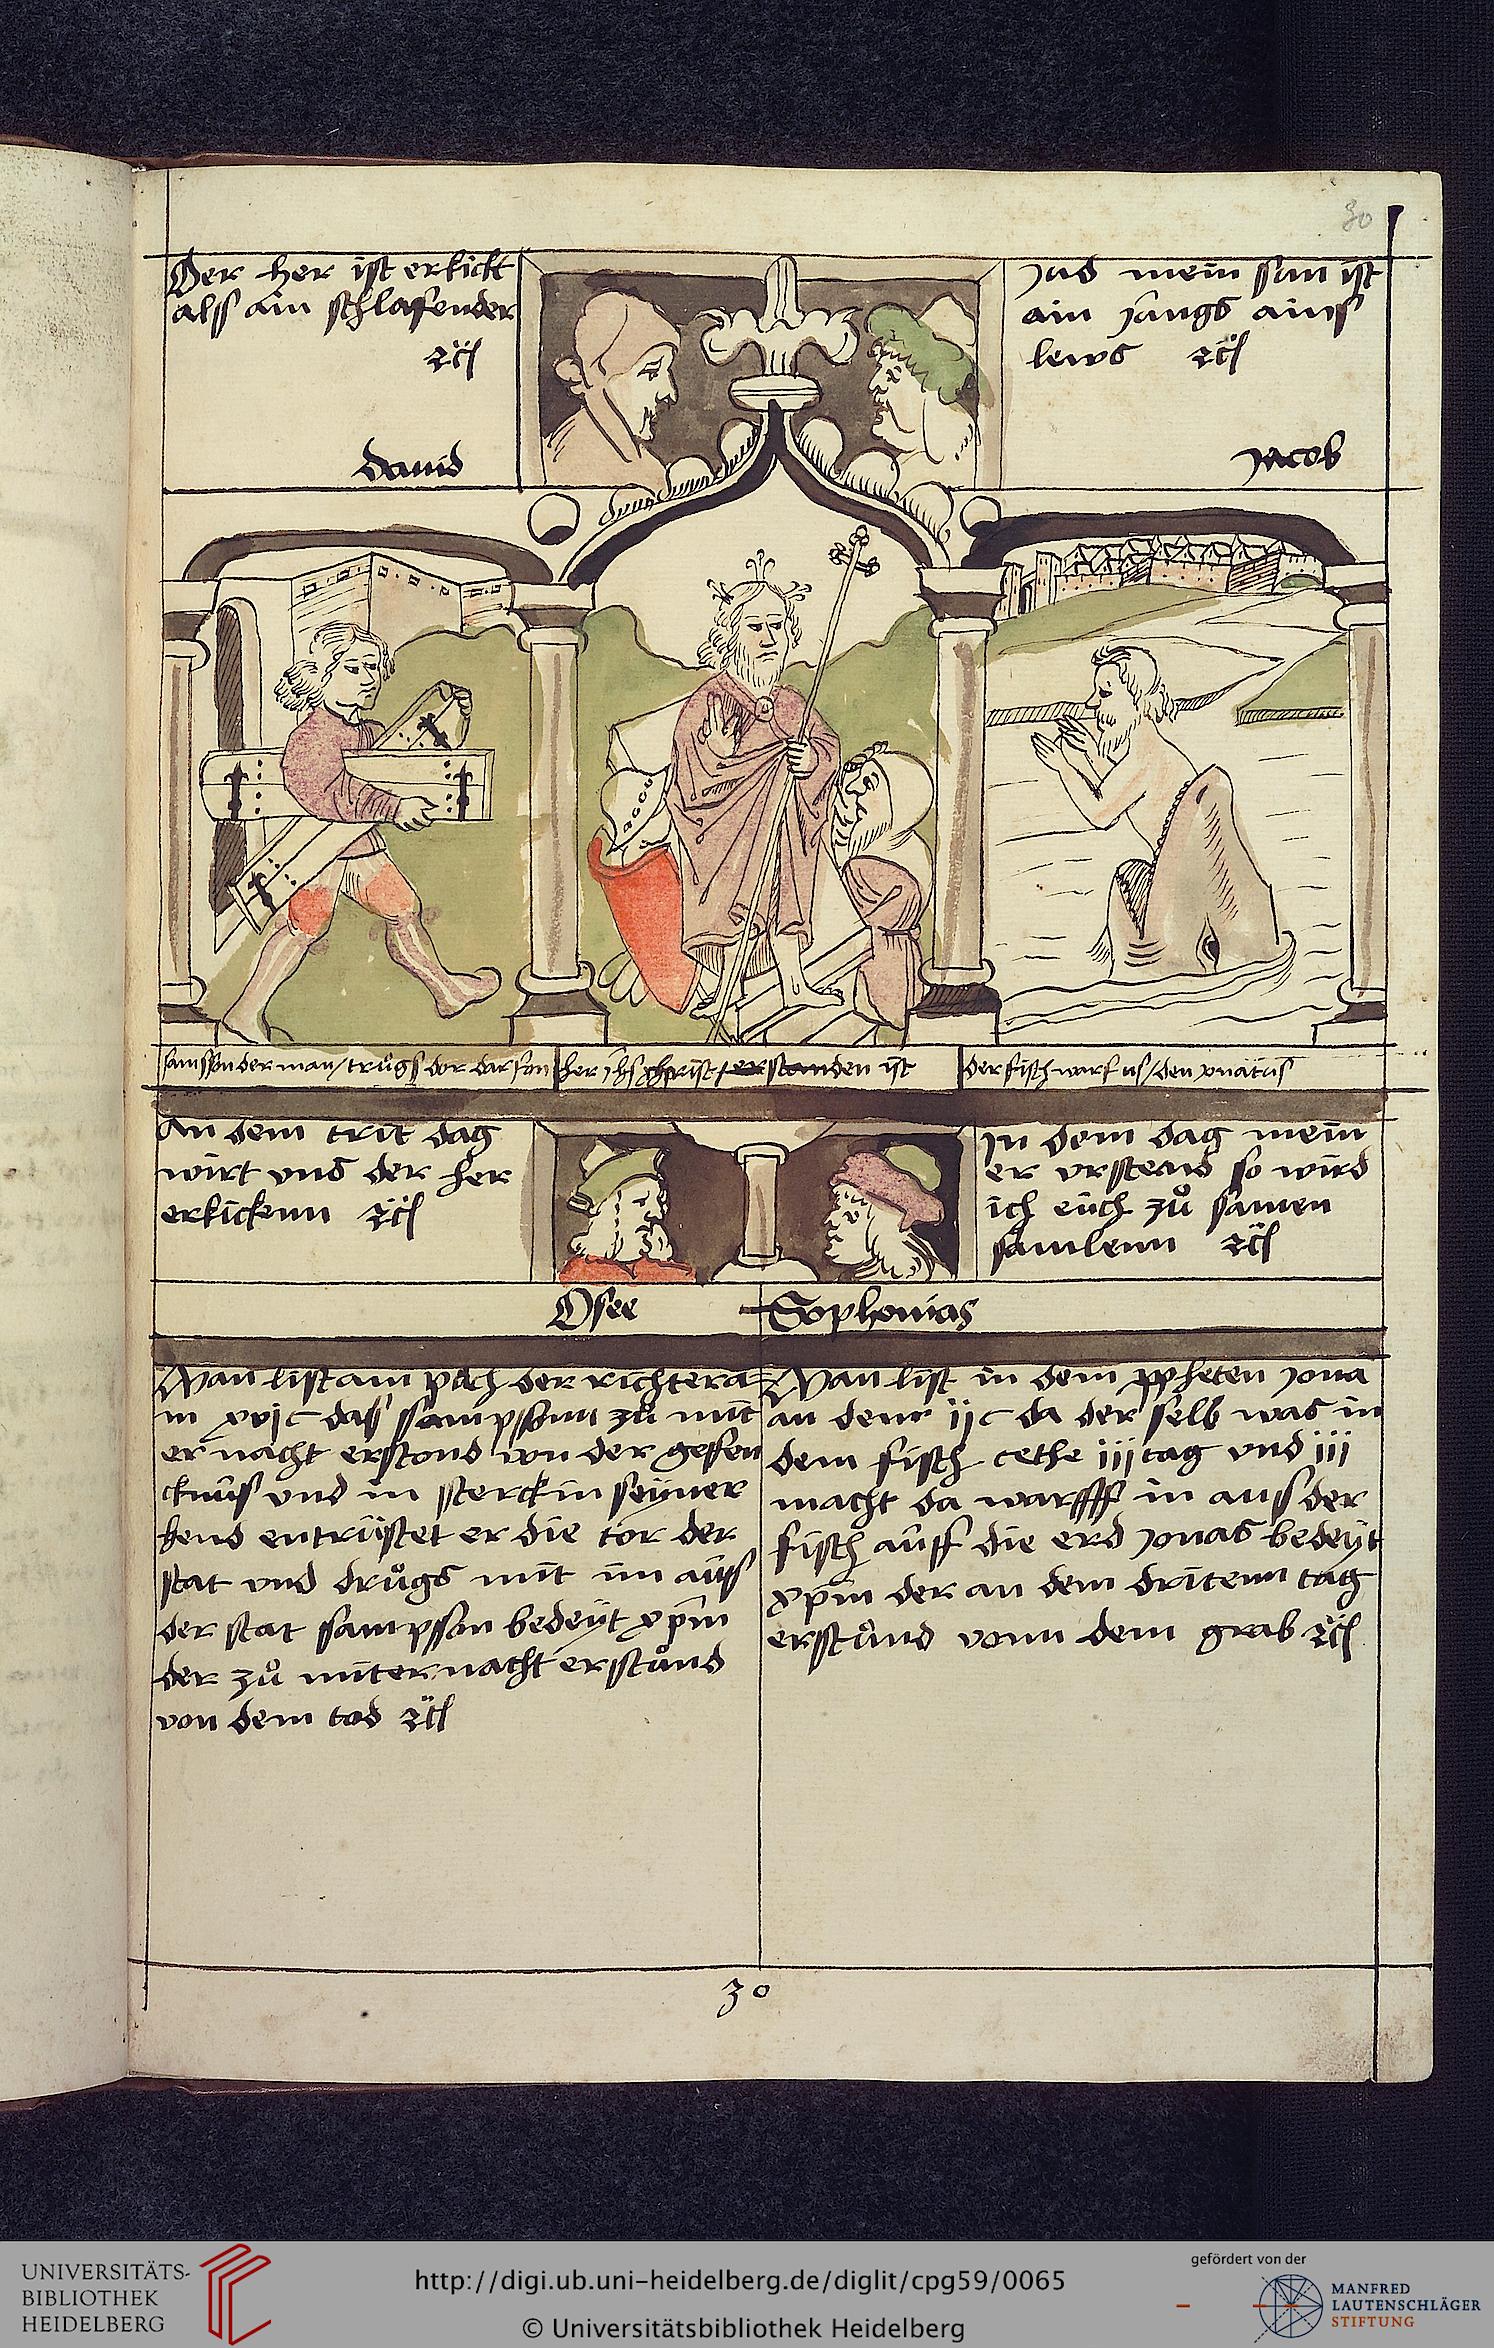 30
Der her ist erkickt
alss ain schlafender
zc̈
dauid
Jud mein sun ist
ain jungs ains
lews zc̈
Jacob
samsson der man / truͦgs dor dar fon
her ihs christ / erstanden ist
der fisch warf us / den
An dem trit dag
wirt vns der her
erkickenn zc̈
In dem dag mein
er vrstend so wird
ich euch zuͦ samen
samlenn zc̈
Osee
Sophonias
Man list am puch der richter a
m xvj c dass sampsonn zuͦ mit
er nacht erstond von der gefen
cknus vnd in sterckin seyner
hend entristet er die tor der
stat vnd druͦgs mit im auss
der stat sampson bedeyt xpm
der zuͦ miternacht erstuͦnd
von dem tod zc̈
Man list in dem ppheten Jona
an dem ij c da der selb was in
dem fisch cethe iij tag vnd iij
nacht da warfff in auss der
fisch auff die erd Jonas bedeyt
xpm der an dem dritenn tag
erstuͦnd vonn dem grab zc̈
30
UNIVERSITÄTS-
BIBLIOTHEK
HEIDELBERG
http://digi.ub.uni-heidelberg.de/diglit/cpg59/0065
© Universitätsbibliothek Heidelberg
gefördert von der
MANFRED
LAUTENSCHLÄGER
STIFTUNG